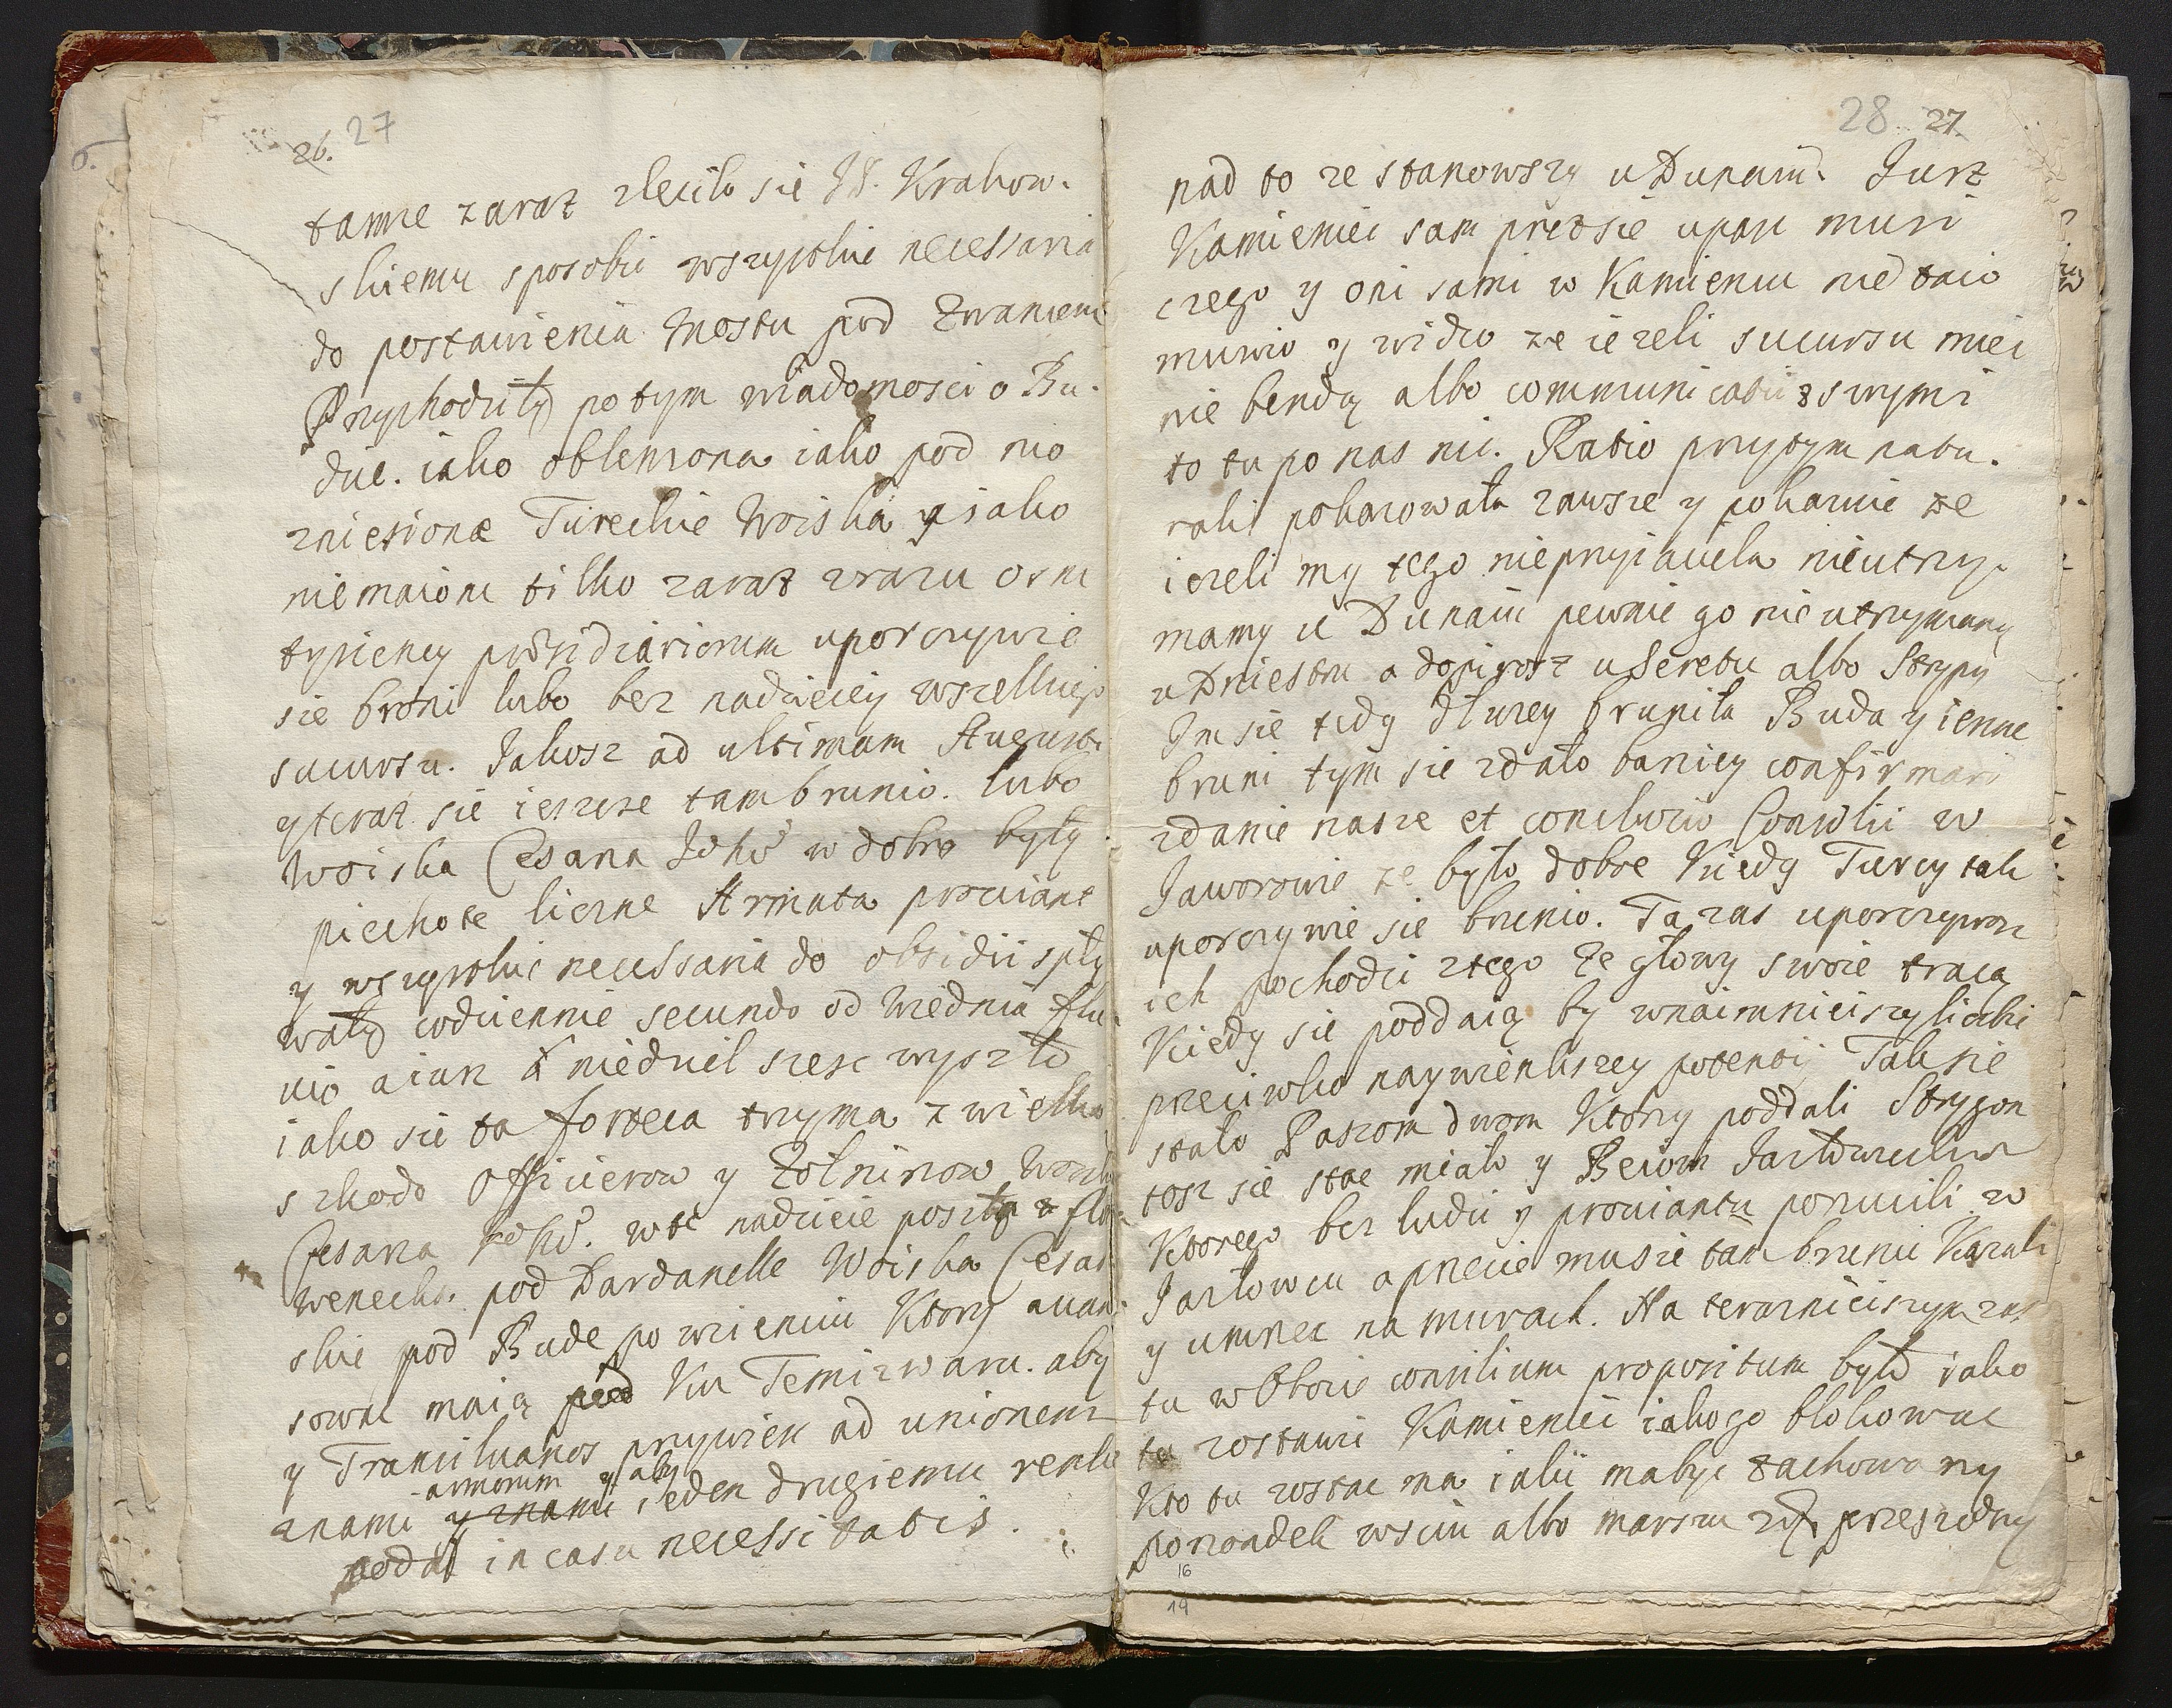 26. 27
tamze zaraz zleciło się JP. Krakow.
skiemu sposobic wszystkie necessaria
do postawienia Mostu pod Zwaniem
Przychodziły potym wiadomosci o Bu.
dzie. iako oblenzona iako pod nio
zniesione Tureckie Woiska y iako
niemaionc tilko zaraz zrazu osm
tysiency præsidiariorum uporczywie
sie broni lubo bez nadzieiey wszelkiego
sucursu. Jakosz ad ultimam Augusti
y teraz sie ieszcze tam bronio. lubo
Woiska Cesarza w dobre były
piechote liczne Armata prowiant
y wszystkie necessaria do obsidii spły
wały codziennie secundo od Wiednia flu.
vio a iusz niedziel szesc wyszło
iako sie ta forteca trzyma z wielko
szkodo Officierow y Zołnirzow Woisk
Cesarza w te nadzieie poszła flo.
wenecka. pod Dardanelle Woiska Cesar.
skie pod Bude po wzienciu Ktory avan.
sowac maią ku Temizwaru. aby
y Transiluanos przywiesc ad unionem
armorum y aby
znami y znami ieden drugiemu renke
podał in casu necessitatis.
28 27.
nad to ze stanowszy u Dunaiu. Jusz
Kamieniec sam przez sie upasc musi
czego y oni sami w Kamiencu nie taio
muwio y widzo ze iezeli sucursu miec
nie bendą albo communicatii z swymi
to tu po nas nic. Ratio przytym natu.
ralis pokazowała zawsze y pokazuie ze
iezeli my tego nieprzyiaciela nieutrzy.
mamy u Dunaiu pewnie go nie utrzymamy
u Dniestru a dopirosz u Seretu albo Strypy
Im sie tedy dłuzey bruniła Buda y ieszcze
bruni tym sie zdało barziey confirmari
zdanie nasze et conclusio Consilii w
Jaworowie ze było dobre Kiedy Turcy tak
uporczywie sie brunio. Ta zas uporczywosc
ich pochodzi ztego ze głowy swoie tracą
Kiedy sie poddaią by wnaimnieiszy liczbi
przeciwko naywienkszey potentii Tak sie
stało Baszom dwom Ktorzy poddali Strygon
tosz sie stac miało y Beiom Jazłowieckim
Ktorego bez ludzi y prowiantu porzucili w
Jazłowcu a przecie musie tam brunic Kazali
y umrzec na murach. Na terazniejszym zas
tu w Obozie consilium propositum było iako
tu zostawic Kamieniec iako go blokowac
Kto tu zostac ma iaki ma byc zachowany
porzondek wsciu albo marszu przeszedszy
16
14